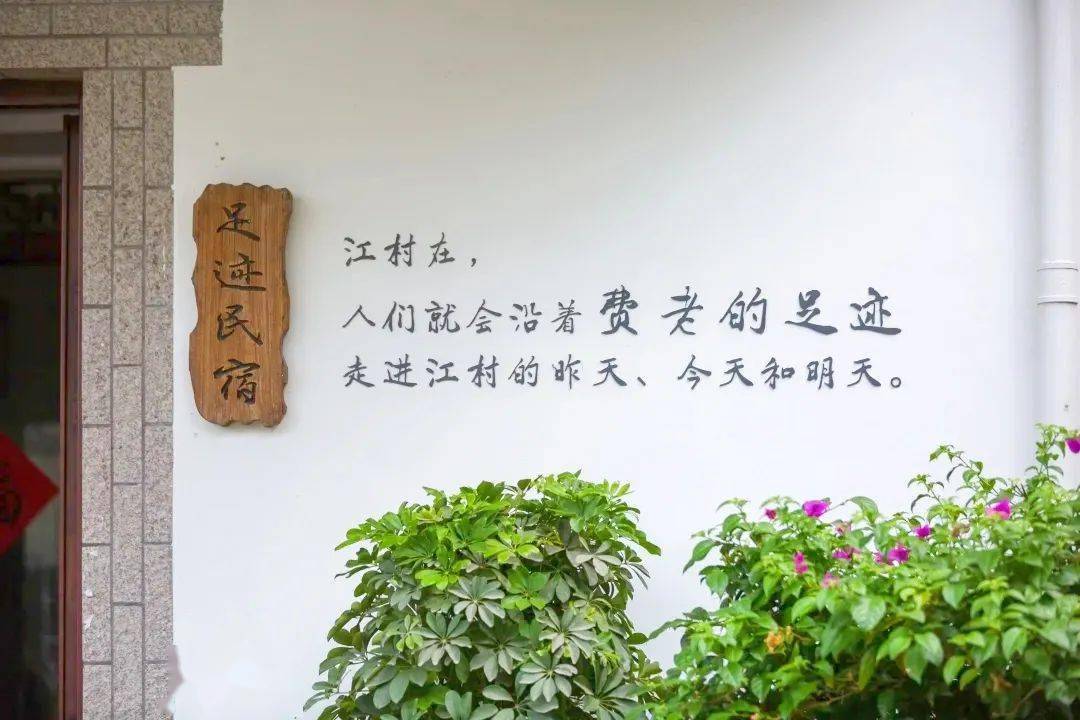 足迹民宿
江村在，
人们就会沿着费老的足迹
走进江村的昨天、今天和明天。